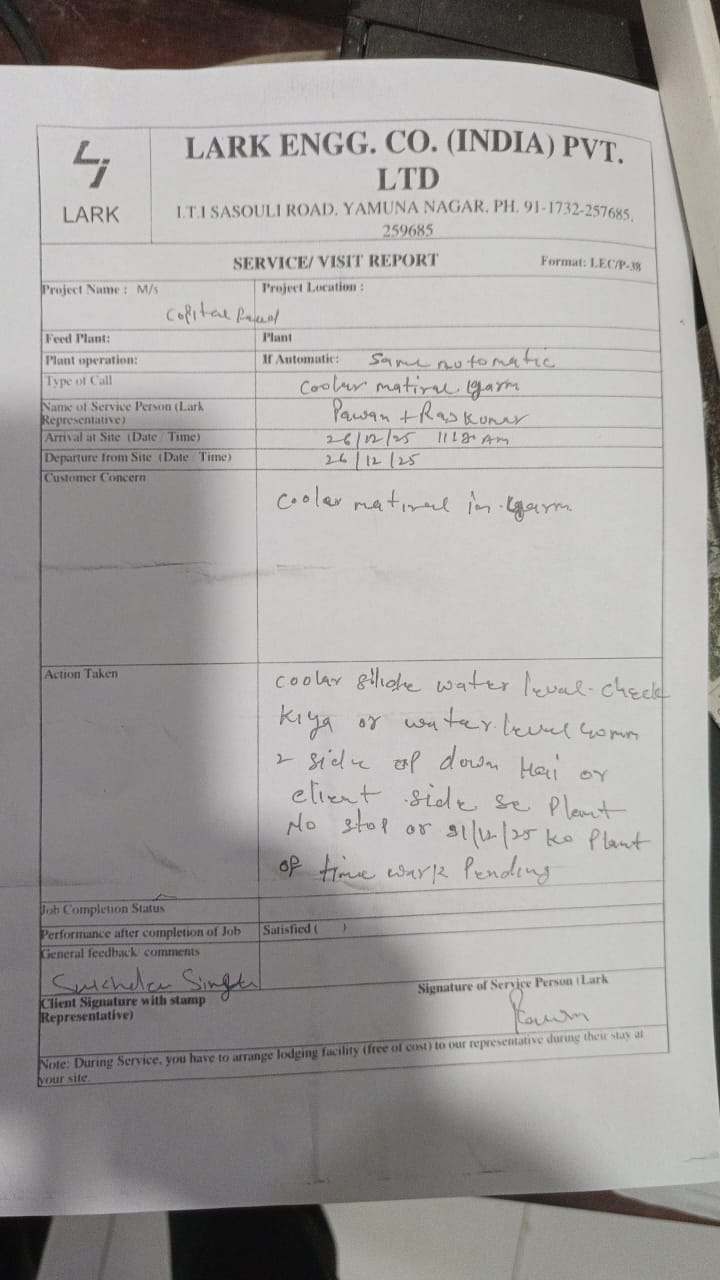 LARK
LARK ENGG. CO. (INDIA) PVT.
LTD
I.T.I SASOULI ROAD, YAMUNA NAGAR. PH. 91-1732-257685,
259685
SERVICE/ VISIT REPORT Format: LEC/P-38
Project Name : M/s Project Location :
Feed Plant: Plant
Plant operation: If Automatic: Same automatic
Type of Call Coolar garm
Name of Service Person (Lark Representative) Pawan +
Arrival at Site (Date / Time) 26/12/25 AM
Departure from Site (Date / Time) 26/12/25
Customer Concern
Coolar in garm
Action Taken
coolar water leval check
kiya or water level
2 side down Hai or
client side se Plant
No stop or 31/12/25 ko Plant
of time wark Pending
Job Completion Status
Performance after completion of Job Satisfied ( )
General feedback comments
Singh
Client Signature with stamp Signature of Service Person (Lark
Representative) Pawan
Note: During Service, you have to arrange lodging facility (free of cost) to our representative during their stay at
your site.